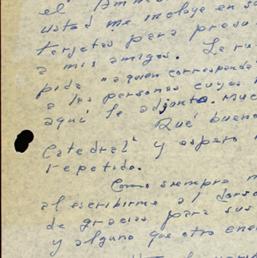 el
usted me incluye en su
tarjetas para presen
a mis amigos. Le ru
pida "a quien corresponda
a las personas cuyos
aquí le adjunto. Muc
Qué bueno
Catedral" y espero
repetido.
Como siempre m
al escribirme al dorso
de gracias para sus
y alguno que otro ene